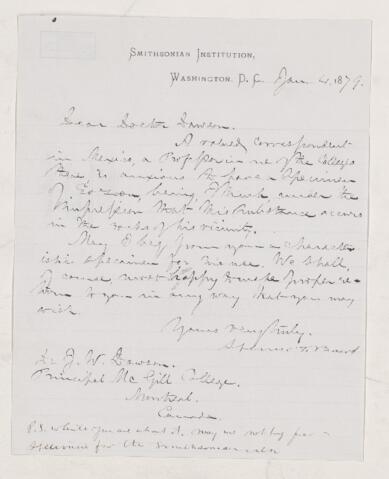 SMITHSONIAN INSTITUTION,
WASHINGTON, D. C. Jan 4, 1879.
Dear Doctor Dawson.
A valued correspondent
in Mexico, a Professor in one of the Colleges
there is anxious to have a specimen
of Eozoon, being I think under the
impression that this substance occurs
in the rocks of his vicinity.
May I beg from you a character
istic specimen for his use. We shall,
of course, be happy to make proper re-
turn to you in any way that you may
wish.
Yours very truly,
Spencer F. Baird
Dr J. W. Dawson.
Principal McGill College.
Montreal.
Canada.
P.S. while you are about it, may we not beg for a
specimen for the Smithsonian